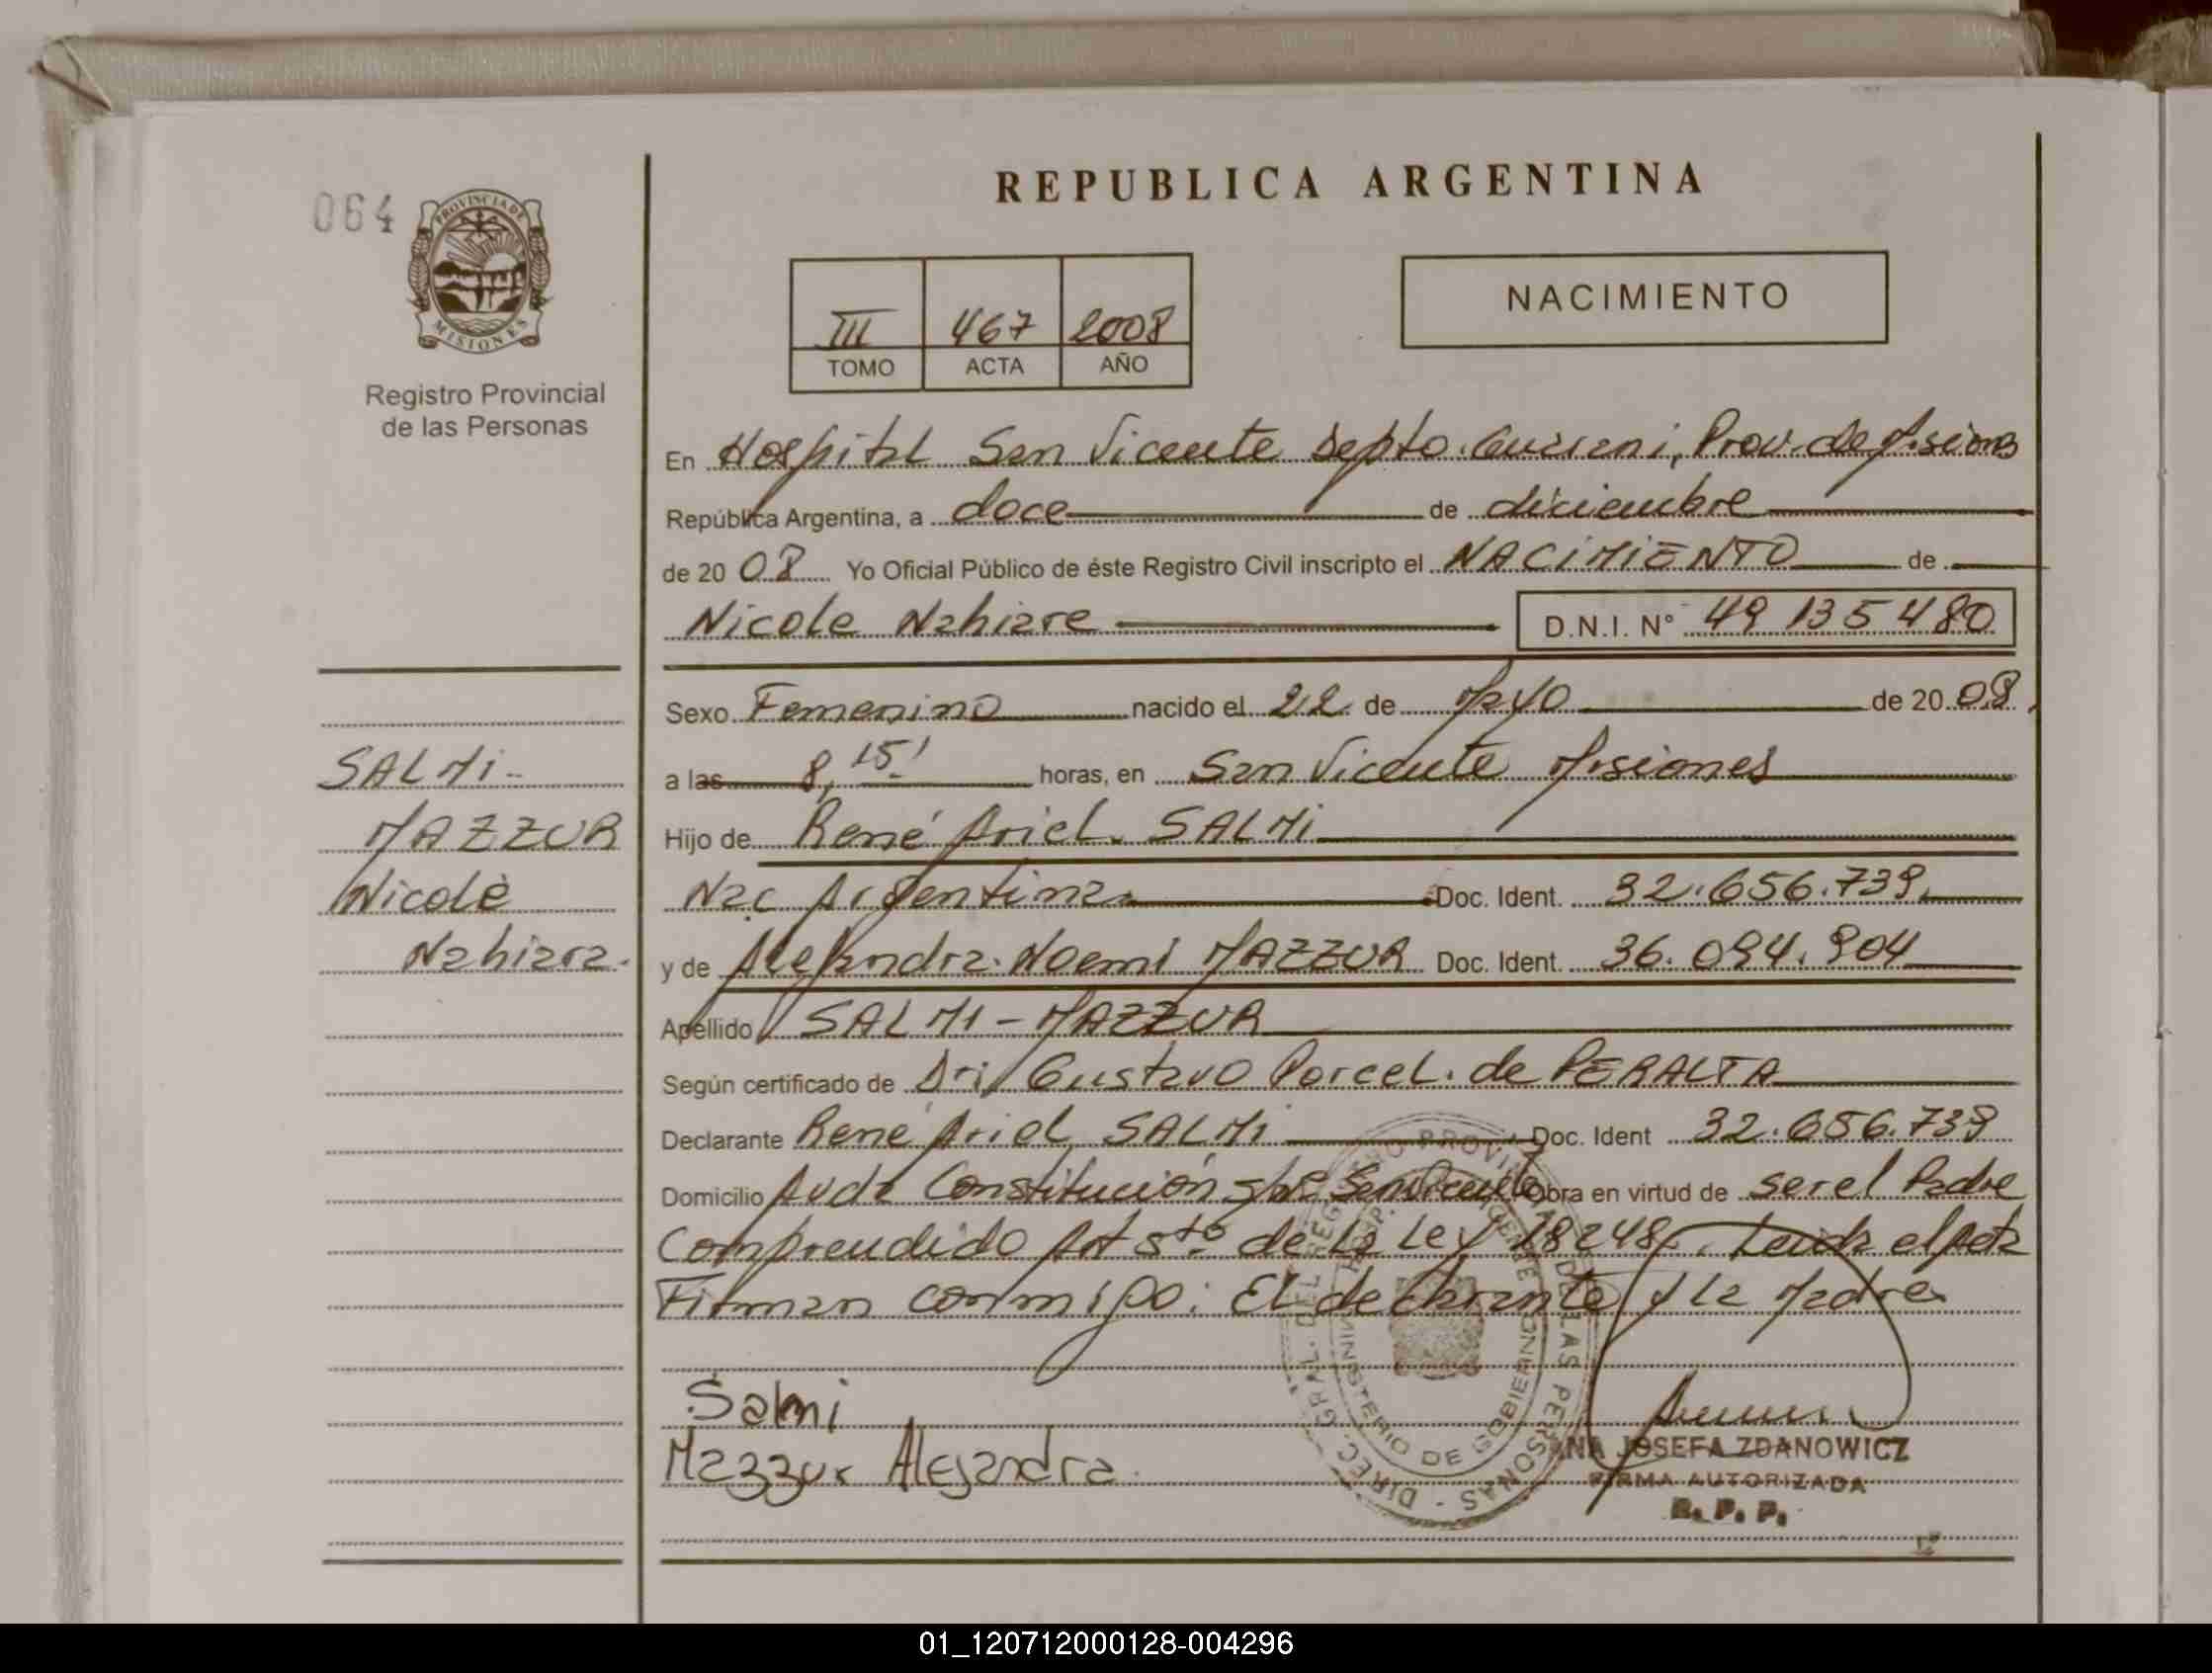 REPUBLICA ARGENTINA
064
PROVINCIA DE
MISIONES
Registro Provincial
de las Personas
III 467 2008
TOMO ACTA AÑO
NACIMIENTO
En Hospital San Vicente Depto. Guaraní, Prov. de Misiones
República Argentina, a doce de diciembre
de 20 08 Yo Oficial Público de éste Registro Civil inscripto el NACIMIENTO de
Nicole Nahiare D.N.I. Nº 49 135 480
Sexo Femenino nacido el 22 de Mayo de 20 08
a las 8, 15' horas, en San Vicente Misiones
Hijo de René Ariel SALMi
Nac Argentina Doc. Ident. 32.656.739
y de Alejandra Noemi MAZZUR Doc. Ident. 36.094.904
Apellido SALMI - MAZZUR
Según certificado de Dr. Gustavo Porcel de PERALTA
Declarante René Ariel SALMi Doc. Ident 32.656.739
Domicilio Avda Constitución San Vicente Obra en virtud de ser el Padre
Comprendido Art 5to de la Ley 18248. Leída el Acta
Firman conmigo: El declarante y la Madre
Salmi
Mazzur Alejandra
SALMi-
MAZZUR
Nicole
Nahiara.
DIREC. GRAL. DEL REGISTRO PROVINCIAL DE LAS PERSONAS
MINISTERIO DE GOBIERNO
ANA JOSEFA ZDANOWICZ
FIRMA AUTORIZADA
R. P. P.
01_120712000128-004296